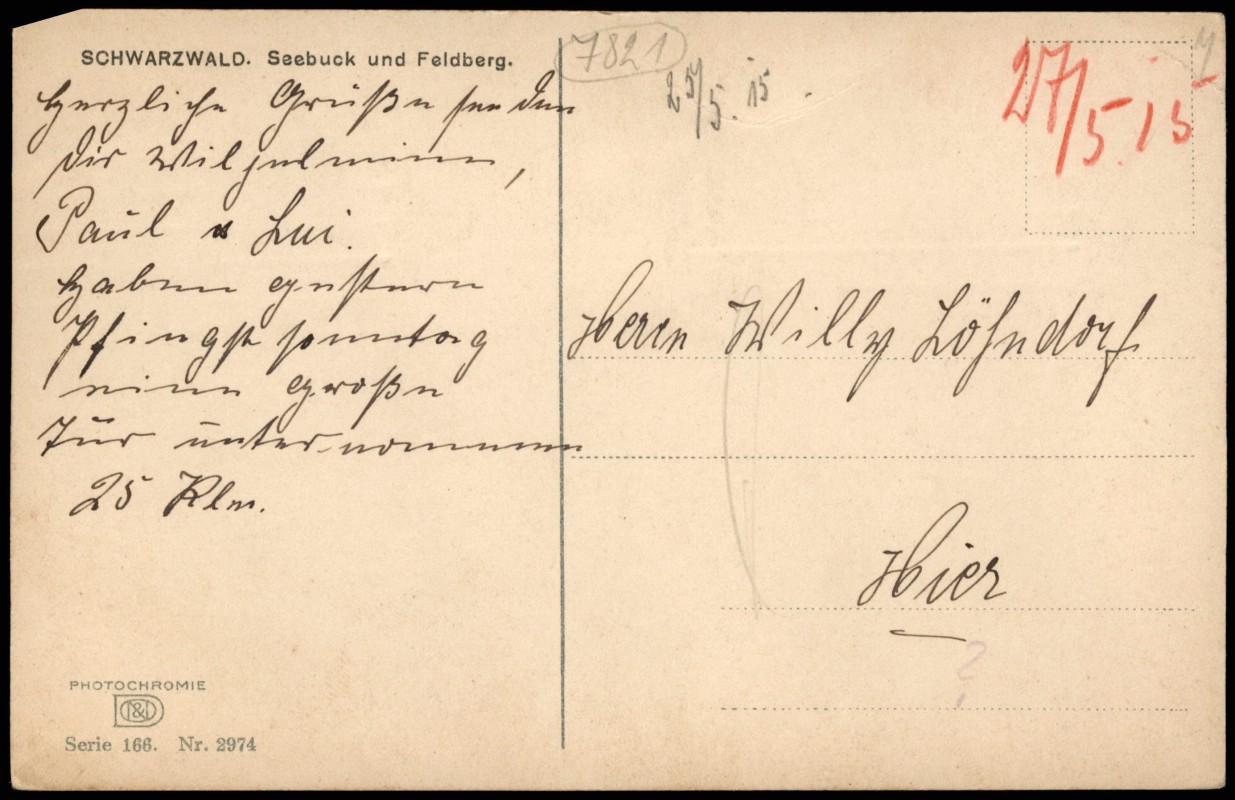 SCHWARZWALD. Seebuck und Feldberg.
Herzliche Grüße senden
dir Wilhelmine,
Paul u Lui.
Haben gestern
Pfingstsonntag
eine große
Tur unternommen
25 Klm.
PHOTOCHROMIE
Serie 166. Nr. 2974
7821
25/5.15.
27/5.15
Herrn Willy Löhndorf
Hier
?